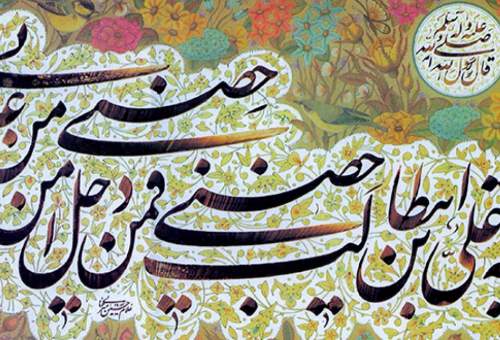 قال رسول الله
صلی الله
علیه و آله و سلم
علی بن ابیطالب حصنی فمن دخل حصنی امن من